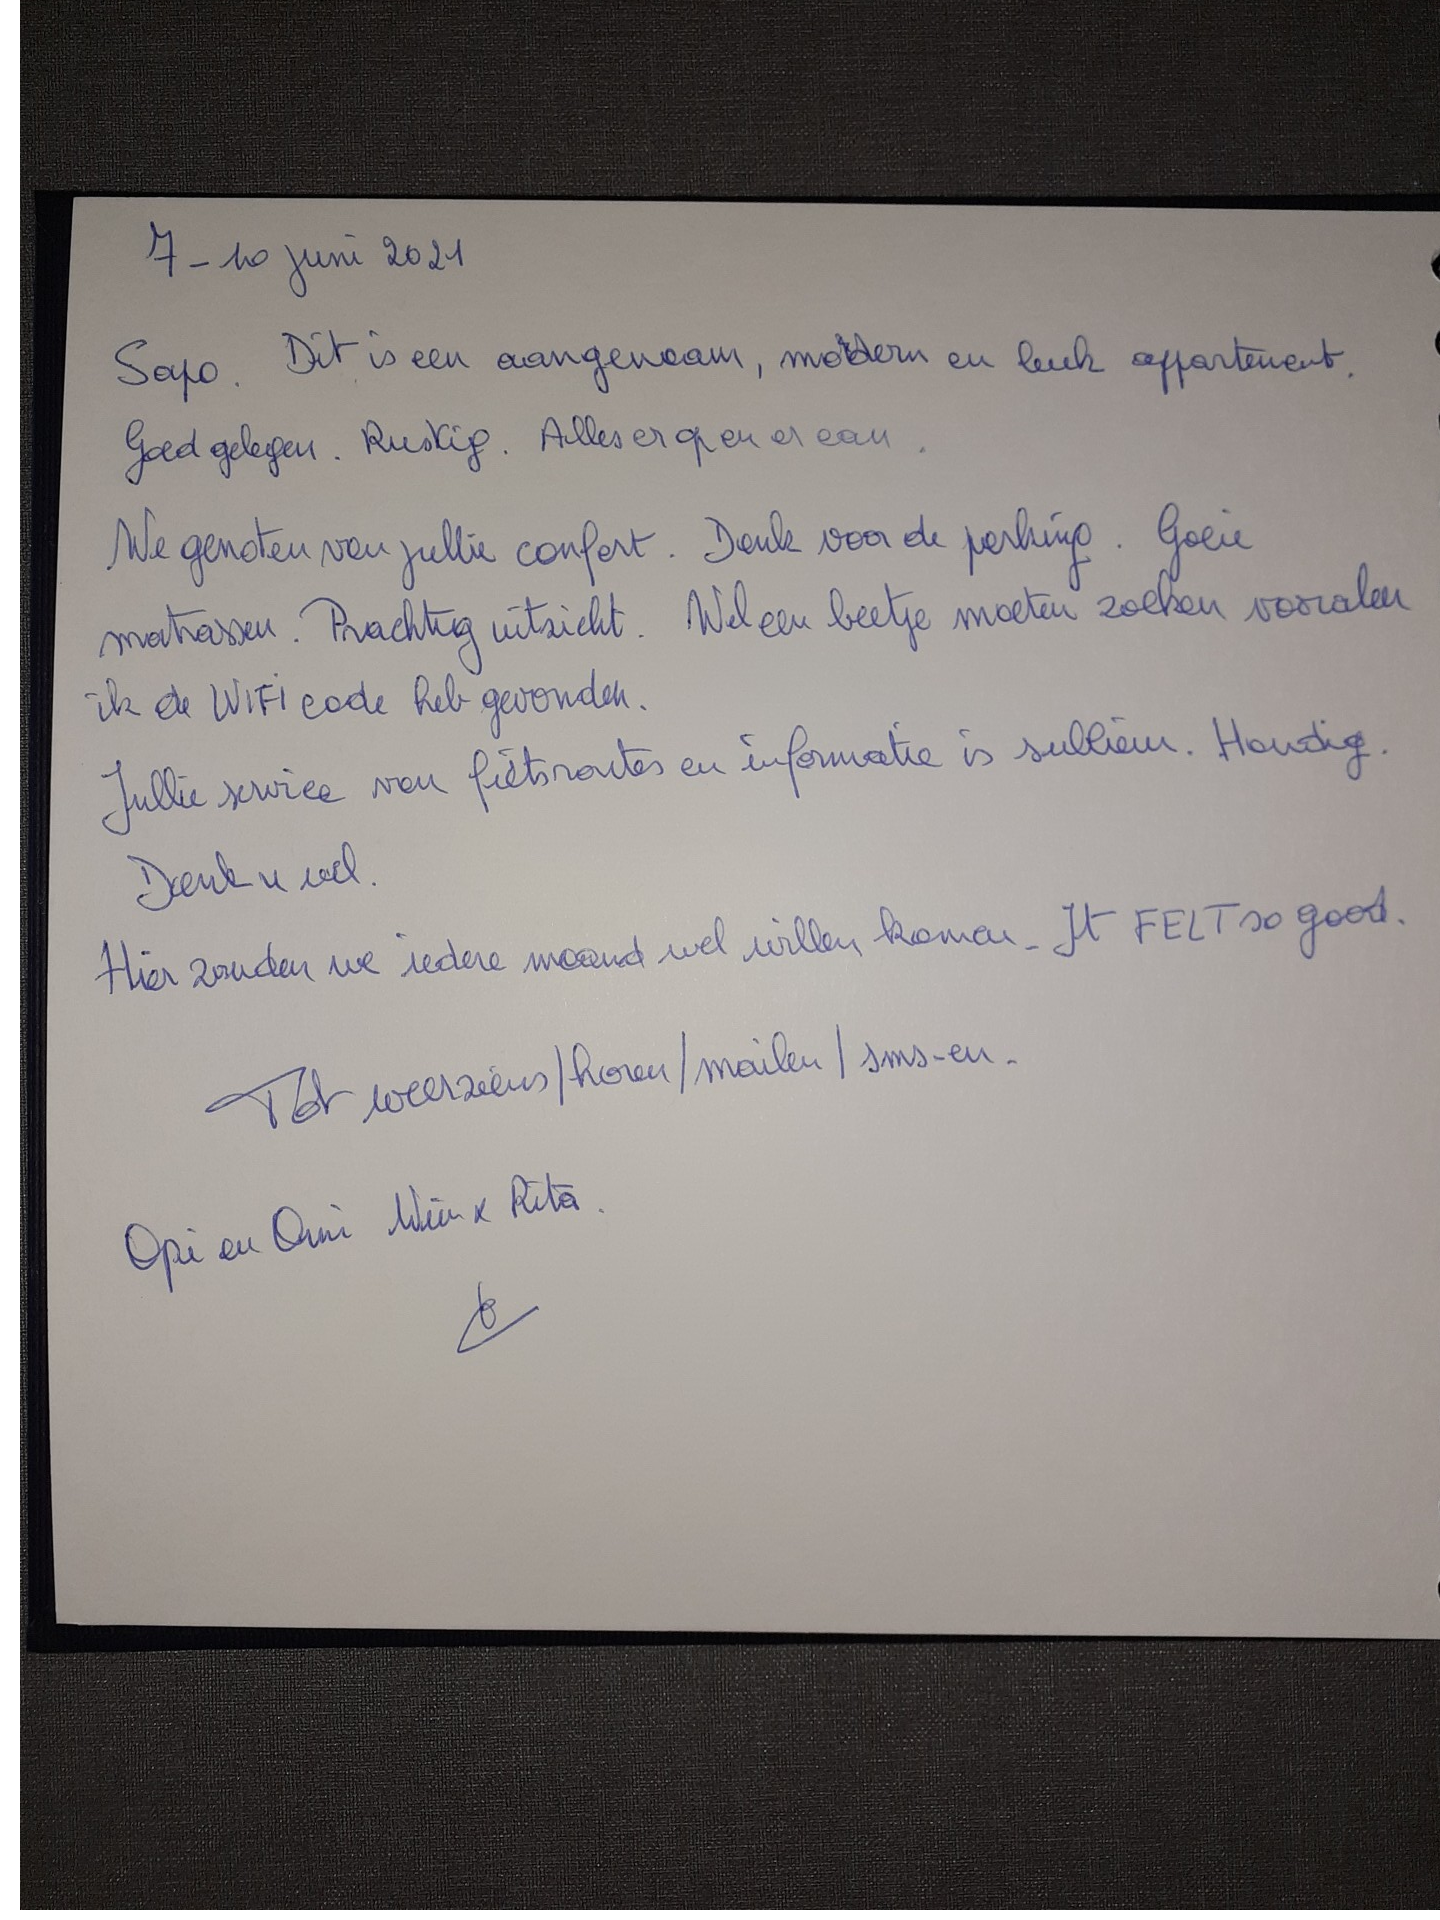 7 - 10 juni 2021
Sapo. Dit is een aangenaam, modern en leuk appartement.
Goed gelegen. Rustig. Alles er op en er aan.
We genoten van jullie confort. Dank voor de parking. Goeie
matrassen. Prachtig uitzicht. Wel een beetje moeten zoeken vooraleer
ik de WIFI code heb gevonden.
Jullie service van fietsroutes en informatie is subliem. Handig.
Dank u wel.
Hier zouden we iedere maand wel willen komen - It FELT so good.
Tot weerziens/horen/mailen/sms-en.
Opi en Omi Rita.